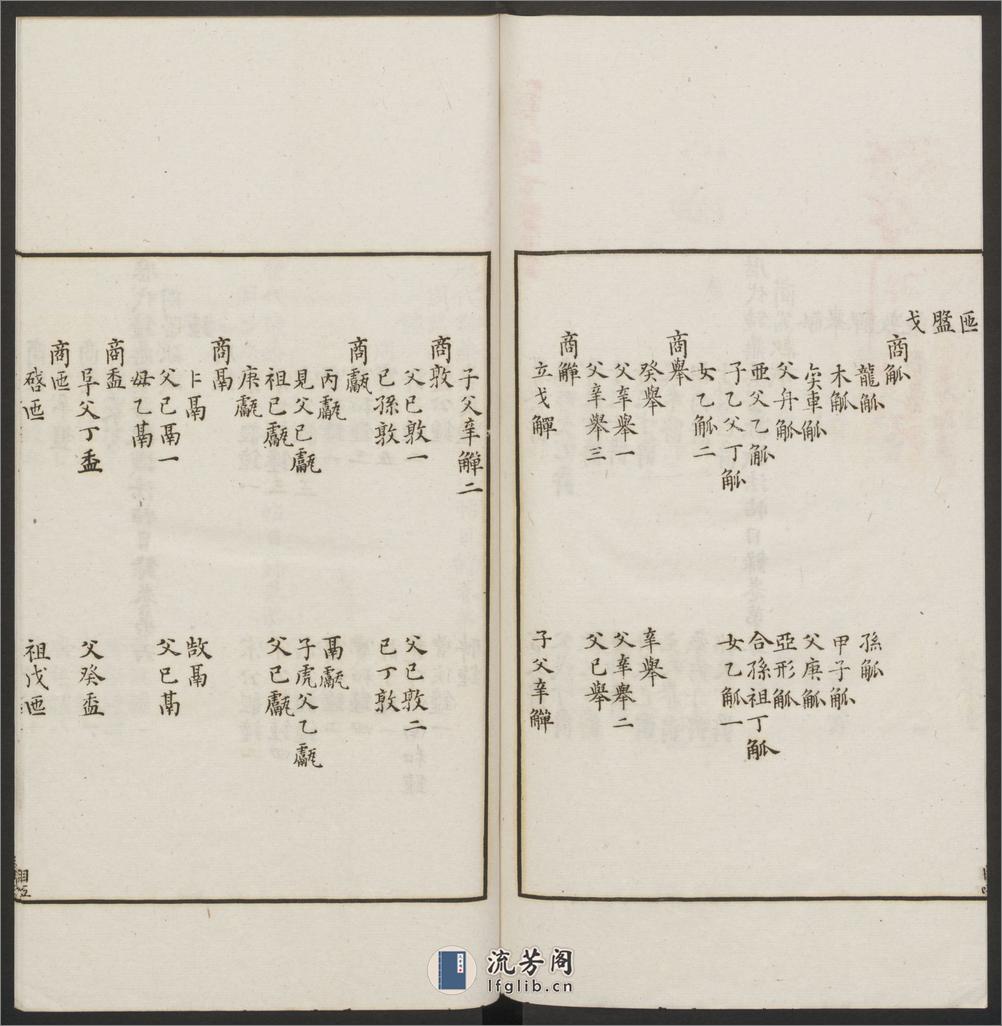 匜
盤
戈
商觚
龍觚　孫觚
木觚　甲子觚
車觚　父庚觚
父舟觚　亞形觚
亞父乙觚　合孫祖丁觚
子乙父丁觚　女乙觚一
女乙觚二
商舉
癸舉　辛舉
父辛舉一　父辛舉二
父辛舉三　父巳舉
商觶
立戈觶　子父辛觶
子父辛觶二
商敦
父巳敦一　父巳敦二
巳孫敦　巳丁敦
商甗
丙甗　鬲甗
見父巳甗　子虎父乙甗
祖巳甗　父巳甗
庚甗
商鬲
卜鬲　鬲
父巳鬲一　父巳鬲
母乙鬲
商盉
阜父丁盉　父癸盉
商匜
啓匜　祖戊匜
目五
流芳阁
lfglib.cn